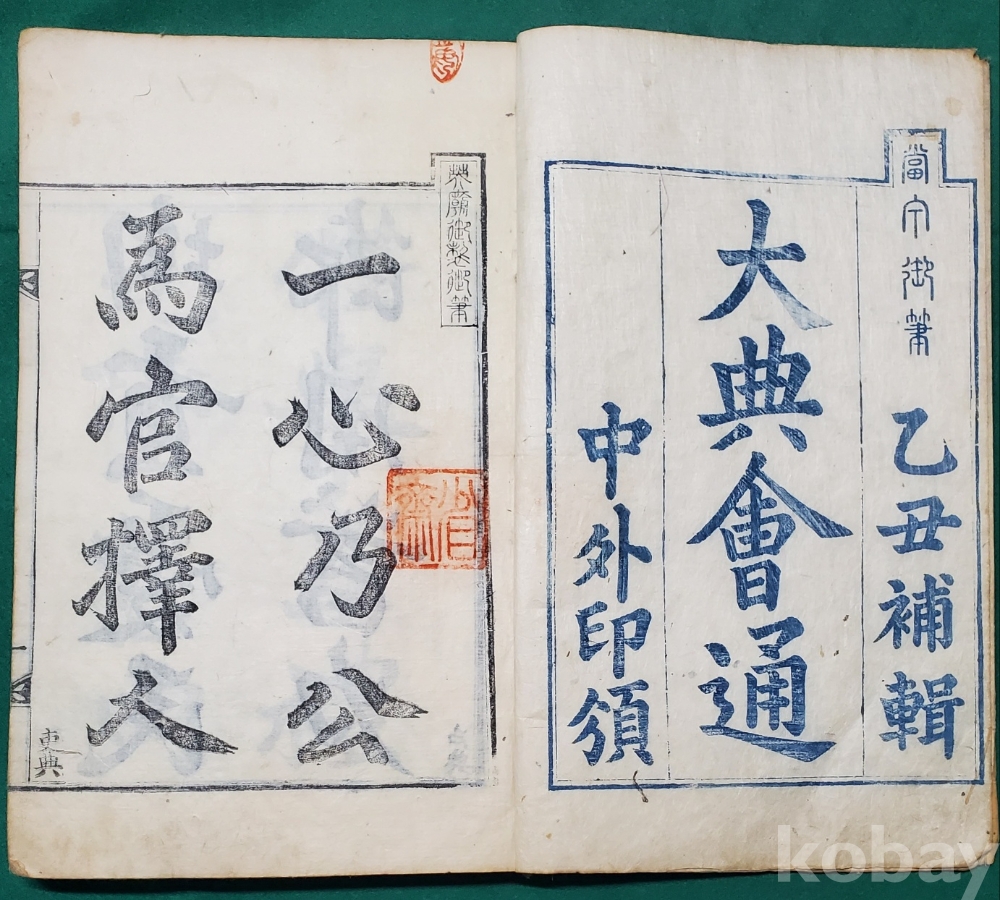 當宁御筆
乙丑補輯
大典會通
中外印頒
英廟御製御筆
一心乃公
為官擇人
吏典
kobay